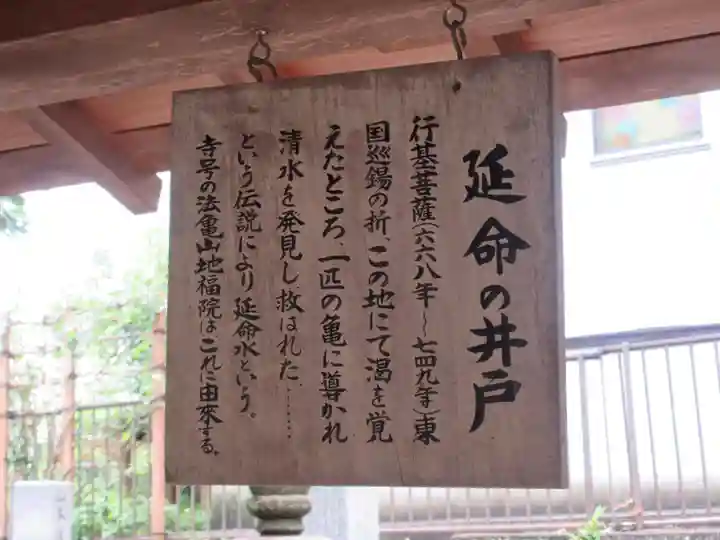 延命の井戸
行基菩薩(六六八年～七四九年)東
国巡錫の折、この地にて渇を覚
えたところ、一匹の亀に導かれ
清水を発見し救はれた………
という伝説により延命水という。
寺号の法亀山地福院はこれに由來する。